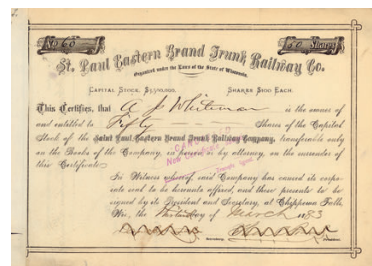 No 60 50 Shares
St. Paul Eastern Grand Trunk Railway Co.
Organized under the Laws of the State of Wisconsin.
CAPITAL STOCK, SHARES $100 EACH.
This Certifies, that A J Whiteman is the owner of
and entitled to Fifty Shares of the Capital
Stock of the Saint Paul Eastern Grand Trunk Railway Company, transferable only
on the Books of the Company, in person or by attorney, on the surrender of
this Certificate.
In Witness whereof, said Company has caused its corpo-
rate seal to be hereunto affixed, and these presents to be
signed by its President and Secretary, at Chippewa Falls,
Wis., the day of March 1883
Secretary. President.